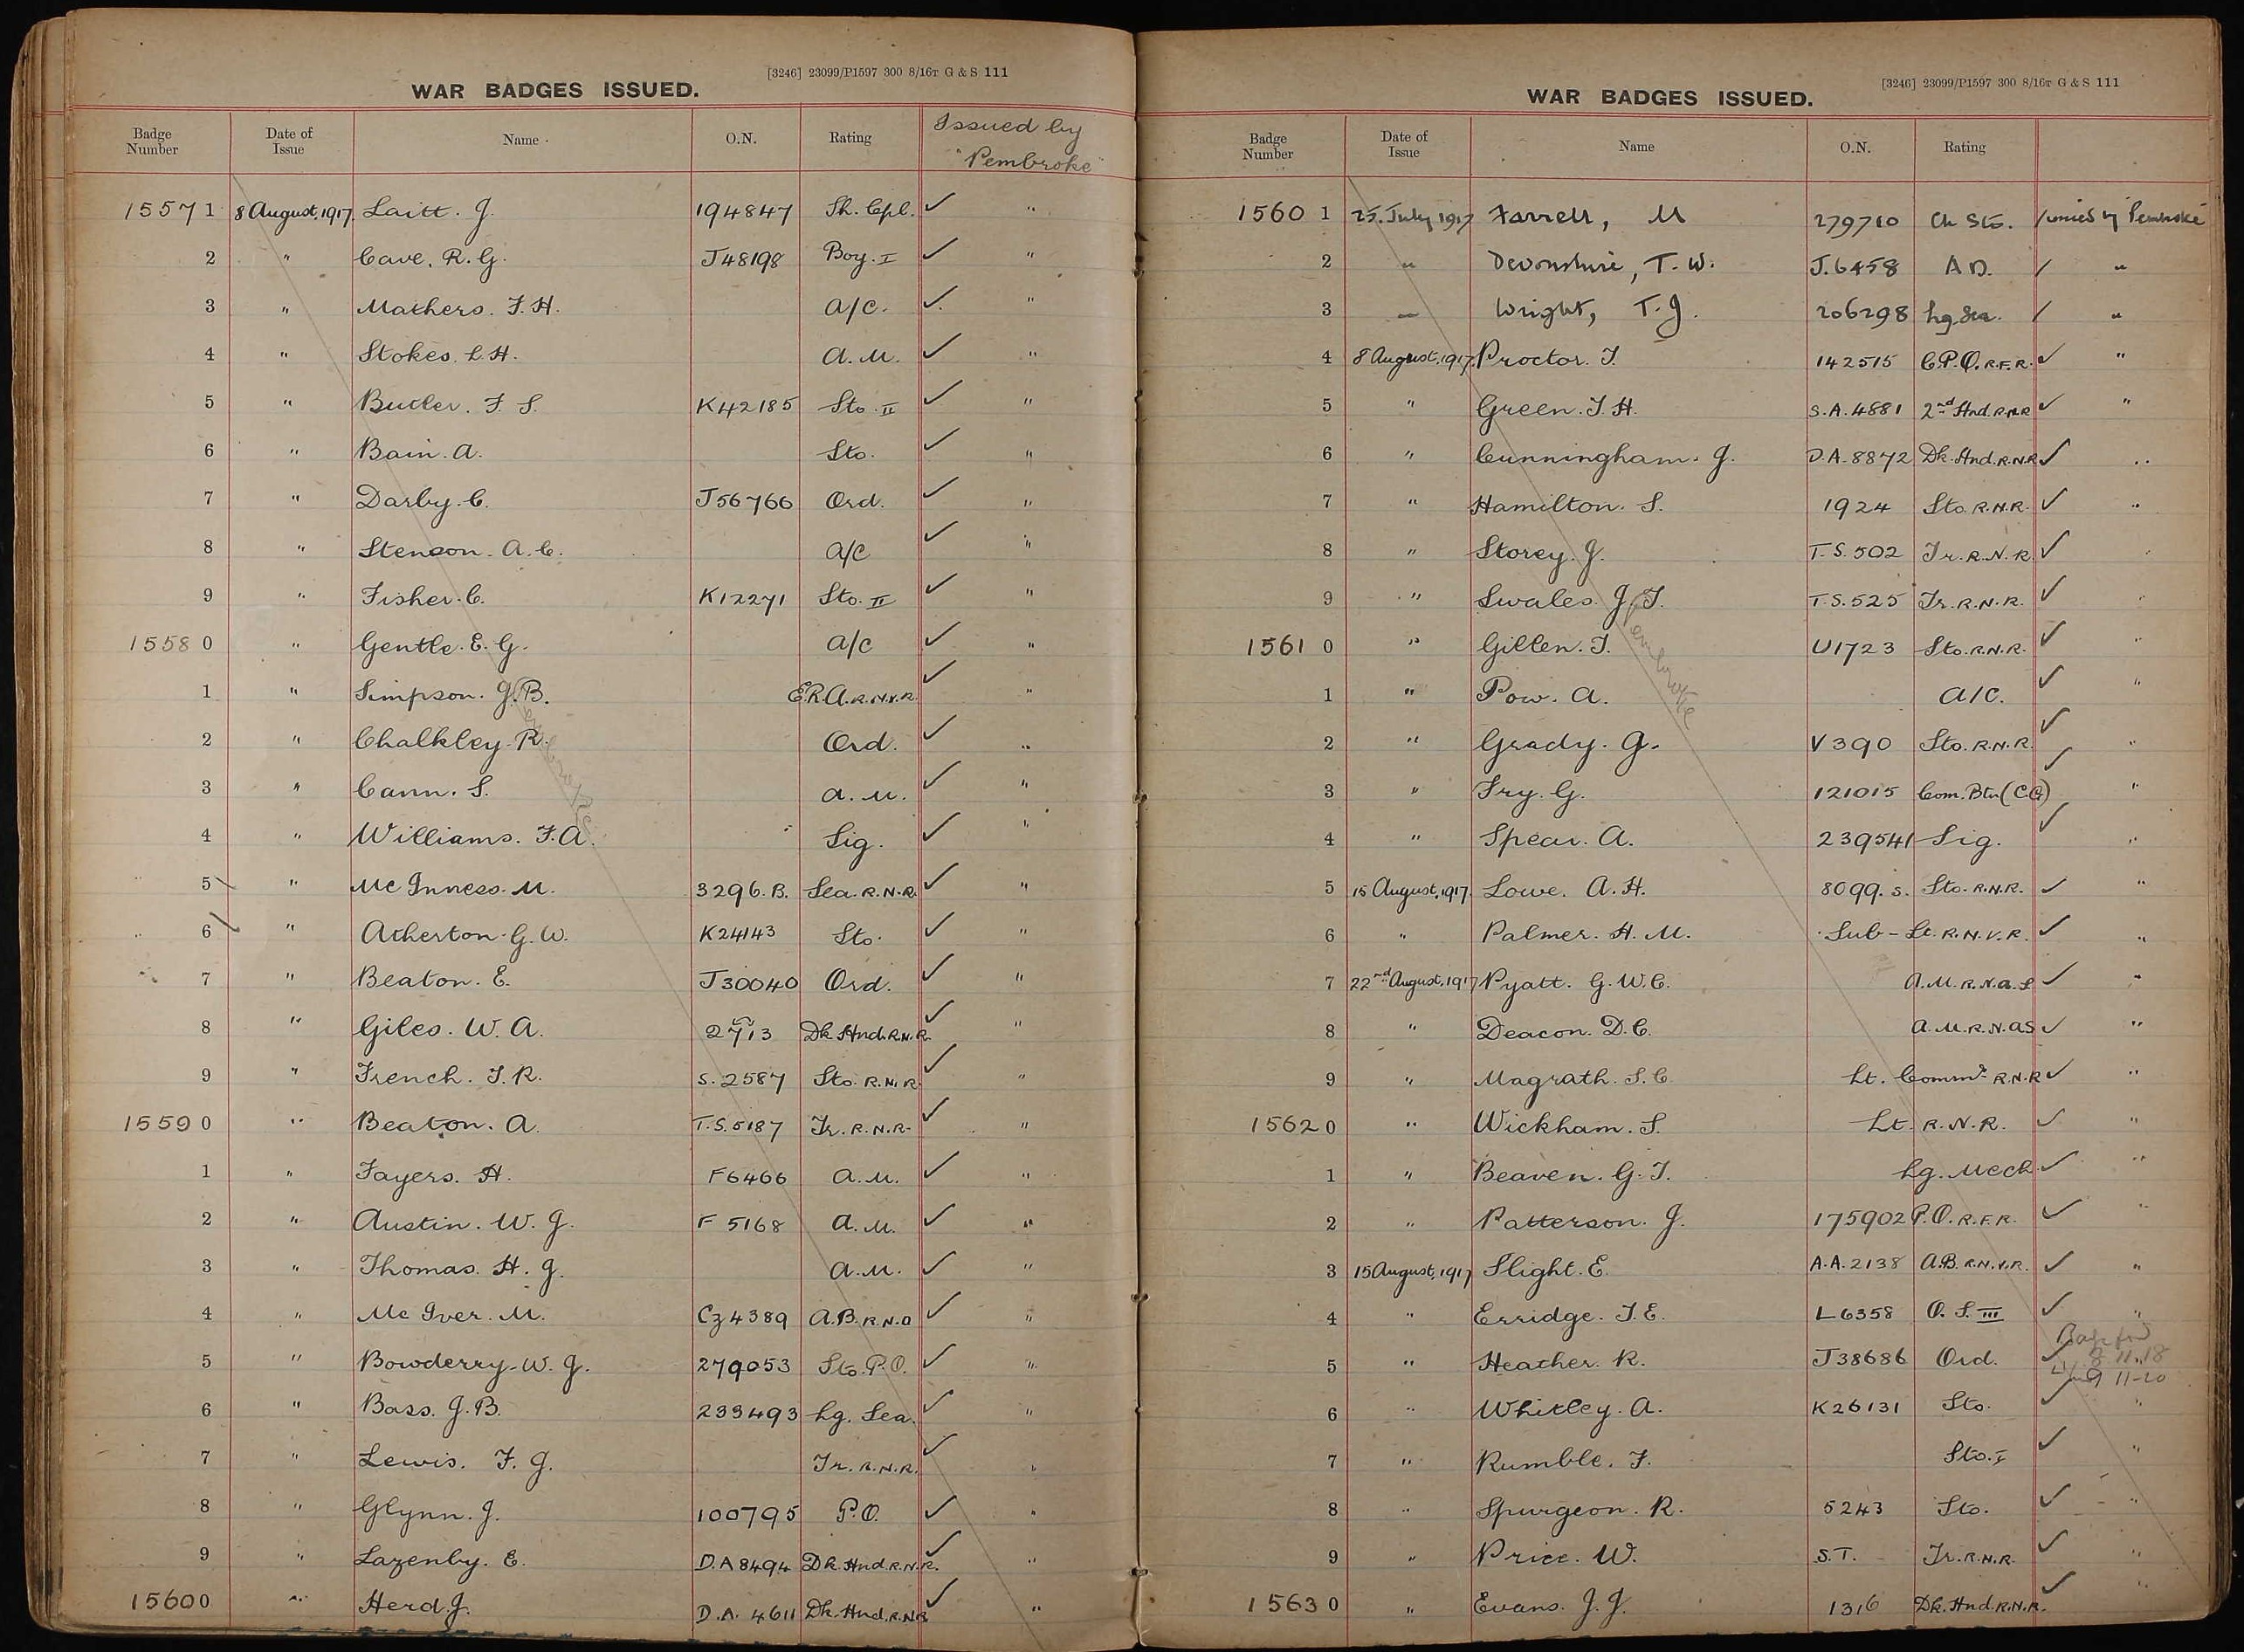 [3246] 23099/P1597 300 8/16T G & S 111
WAR BADGES ISSUED.
Badge Number Date of Issue Name O.N. Rating Issued by "Pembroke"
15571 8 August, 1917. Laitt. J. 194847 Sh. Cpl. ✓ "
2 " Cave. R. G. J48198 Boy. I ✓ "
3 " Mathers. F. H. A/C. ✓ "
4 " Stokes. L H. A. M. ✓ "
5 " Butler. F. S. K42185 Sto. II ✓ "
6 " Bain. A. Sto. ✓ "
7 " Darby. C. J56766 Ord. ✓ "
8 " Stenson. A. C. A/C ✓ "
9 " Fisher. C. K12271 Sto. II ✓ "
15580 " Gentle. E. G. A/C ✓ "
1 " Simpson. J. B. E.R.A. R.N.V.R. ✓ "
2 " Chalkley. R. Ord. ✓ "
3 " Cann. S. A. M. ✓ "
4 " Williams. F. A. Sig. ✓ "
5 " Mc Inness. M. 3296. B. Sea. R.N.R. ✓ "
6 " Atherton. G. W. K24143 Sto. ✓ "
7 " Beaton. E. J30040 Ord. ✓ "
8 " Giles. W. A. 2713 Dk. Hnd. R.N.R. ✓ "
9 " French. J. R. S. 2587 Sto. R.N.R. ✓ "
15590 " Beaton. A. T.S. 5187 Tr. R.N.R. ✓ "
1 " Fayers. H. F6466 A. M. ✓ "
2 " Austin. W. J. F 5168 A. M. ✓ "
3 " Thomas. H. J. A. M. ✓ "
4 " Mc Iver. M. Cz 4389 A.B. R.N.D ✓ "
5 " Bowderry. W. J. 279053 Sto. P.O. ✓ "
6 " Bass. J. B. 233493 Lg. Sea. ✓ "
7 " Lewis. F. J. Tr. R.N.R. ✓ "
8 " Glynn. J. 100795 P.O. ✓ "
9 " Lazenby. E. D.A 8494 Dk. Hnd. R.N.R. ✓ "
15600 " Herd. J. D.A. 4611 Dk. Hnd. R.N.R ✓ "
Pembroke
[3246] 23099/P1597 300 8/16T G & S 111
WAR BADGES ISSUED.
Badge Number Date of Issue Name O.N. Rating
15601 25. July 1917 Farrell, M 279710 Ch Sto. / issued by Pembroke
2 " Devonshire, T. W. J. 6458 A B. / "
3 " Wright, T. J. 206298 Lg. Sea. / "
4 8 August, 1917. Proctor. T. 142515 C.P.O. R.F.R. ✓ "
5 " Green. J. H. S.A. 4881 2nd Hnd. R.N.R ✓ "
6 " Cunningham. J. D.A. 8872 Dk. Hnd. R.N.R ✓ "
7 " Hamilton. S. 1924 Sto. R.N.R. ✓ "
8 " Storey. J. T.S. 502 Tr. R.N.R. ✓ "
9 " Swales. J. T. T.S. 525 Tr. R.N.R. ✓ "
15610 " Gillen. T. U1723 Sto. R.N.R. ✓ "
1 " Pow. A. A/C. ✓ "
2 " Grady. J. V 390 Sto. R.N.R. ✓ "
3 " Fry. G. 121015 Com. Btn (C.G) ✓ "
4 " Spear. A. 239541 Sig. ✓ "
5 15 August, 1917. Lowe. A. H. 8099. S. Sto. R.N.R. ✓ "
6 " Palmer. H. M. Sub-Lt. R.N.V.R. ✓ "
7 22nd August, 1917 Pyatt. G. W. C. A.M. R.N.A.S ✓ "
8 " Deacon. D. C. A.M. R.N.A.S ✓ "
9 " Magrath. S. C. Lt. Commdr. R.N.R ✓ "
15620 " Wickham. S. Lt. R.N.R. ✓ "
1 " Beaven. G. T. Lg. Mech. ✓ "
2 " Patterson. J. 175902 P.O. R.F.R. ✓ "
3 15 August, 1917 Slight. E. A.A. 2138 A.B. R.N.V.R. ✓ "
4 " Erridge. T. E. L6358 O. S. III ✓ "
5 " Heather. R. J38686 Ord. ✓ 8 11.18
11-20
6 " Whitley. A. K26131 Sto. ✓ "
7 " Rumble. F. Sto. I ✓ "
8 " Spurgeon. R. 5243 Sto. ✓ "
9 " Price. W. S.T. Tr. R.N.R. ✓ "
15630 " Evans. J. J. 1316 Dk. Hnd. R.N.R. ✓ "
Pembroke